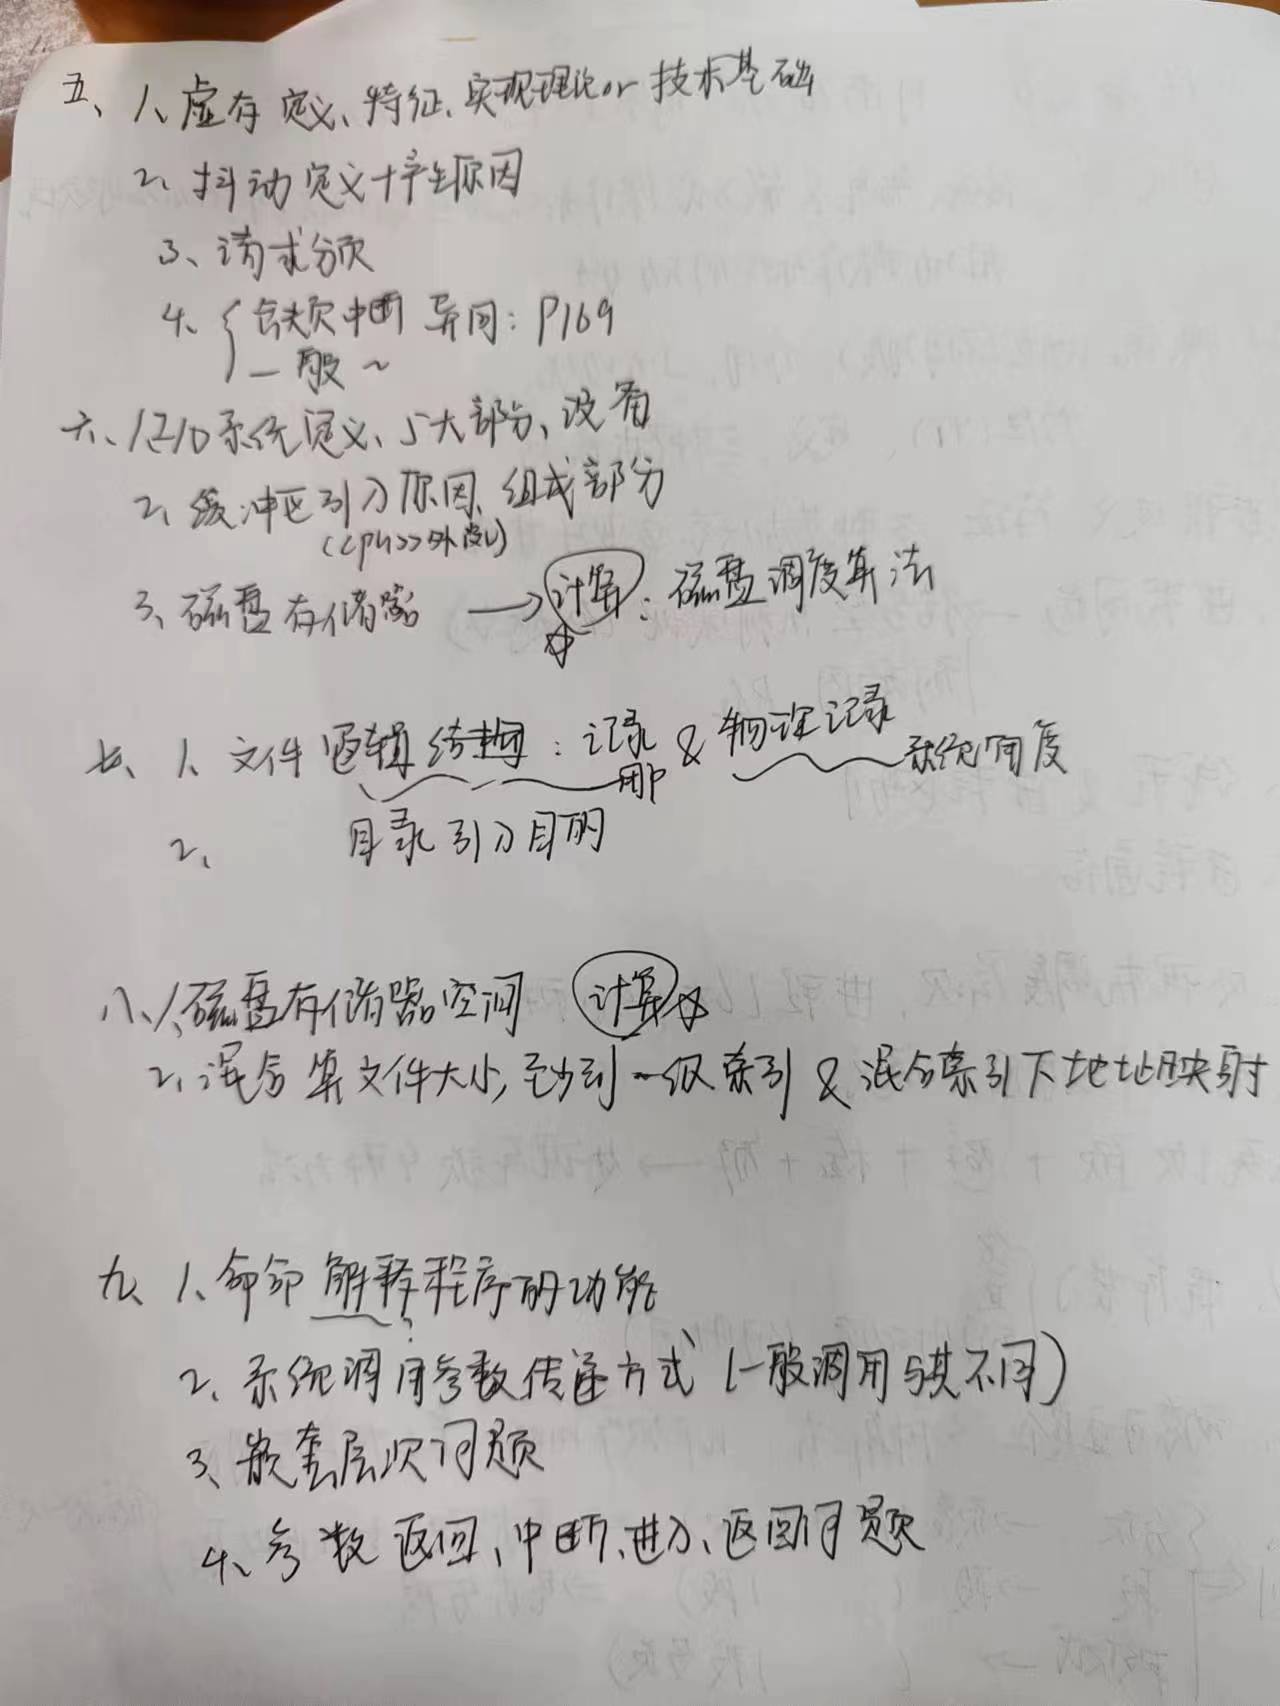 五、1、虚存定义、特征、实现理论or技术基础
2、抖动定义+产生原因
3、请求分页
4、{缺页中断 异同：P169
一般~
六、1、I/O系统定义、5大部分、设备
2、缓冲区引入原因、组成部分
(CPU>>外设)
3、磁盘存储器 → 计算☆：磁盘调度算法
七、1、文件逻辑结构：记录 & 物理记录
用户 系统角度
2、 目录引入目的
八、1、磁盘存储器空间 计算☆
2、混合算文件大小，至少到一级索引 & 混合索引下地址映射
九、1、命令解释程序的功能
2、系统调用参数传递方式 (一般调用与其不同)
3、嵌套层次问题
4、参数返回、中断、进入、返回问题